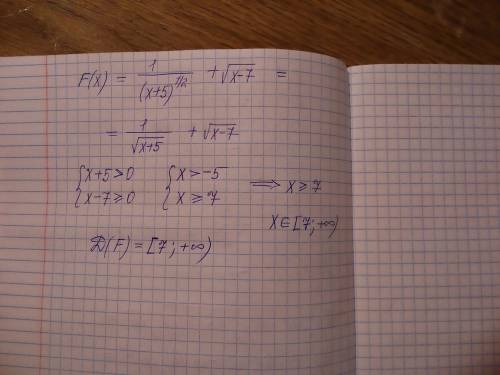 F(x) = 1/(x+5)^1/2 + √x-7 =
= 1/√x+5 + √x-7
{x+5>0 {x>-5
{x-7≥0 {x≥7 ⟹ x≥7
x∈[7;+∞)
D(F)=[7;+∞)